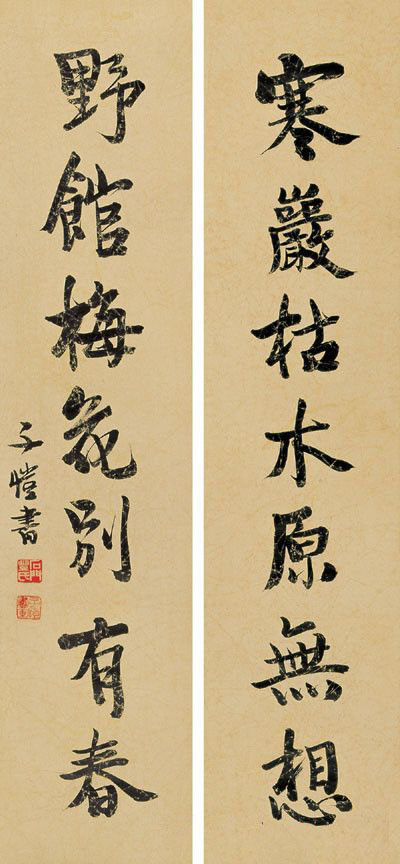 寒巖枯木原無想
野館梅花別有春
子愷書
石門豐氏